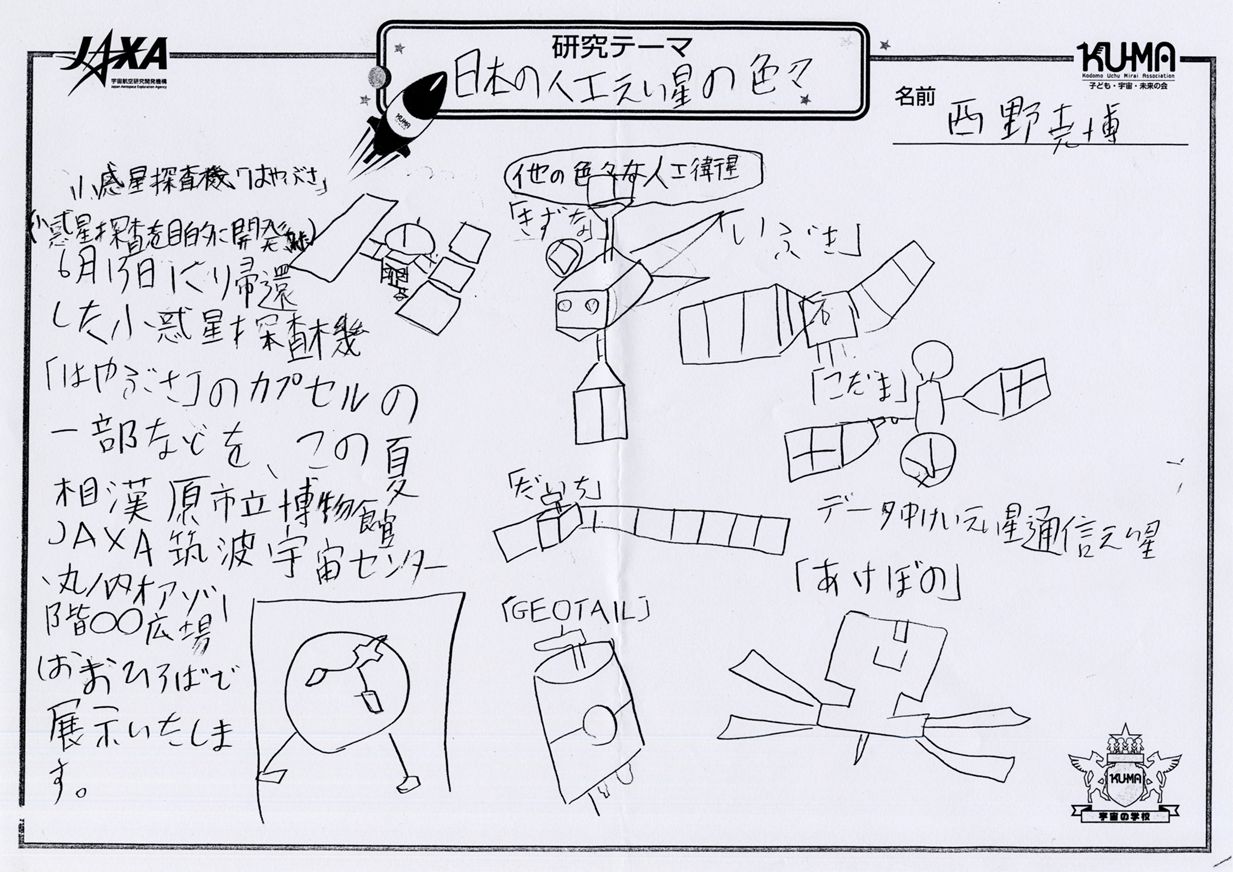 JAXA
宇宙航空研究開発機構
Japan Aerospace Exploration Agency
研究テーマ
日本の人工えい星の色々
KUMA
KUMA
Kodomo Uchu Mirai Association
子ども・宇宙・未来の会
名前
西野 尭博
小惑星探査機「はやぶさ」
(小惑星探査を目的に開発)
6月13日にり帰還
した小惑星探査機
「はやぶさ」のカプセルの
一部などを、この夏
相漢原市立博物館
JAXA筑波宇宙センター
丸ノ内オアゾ1
階〇〇広場
おおひろばで
展示いたしま
す。
他の色々な人工衛星
「きずな」
「いぶき」
「こだま」
データ中けいえい星通信えい星
「だいち」
「GEOTAIL」
「あけぼの」
KUMA
宇宙の学校